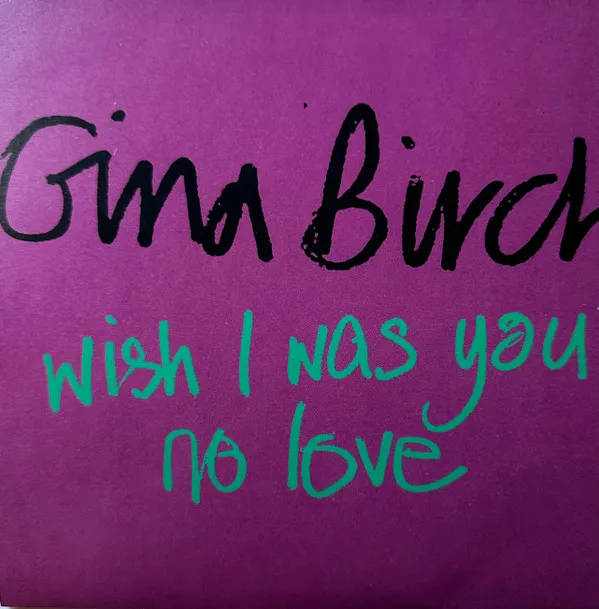 Gina Birch
wish I was you
no love